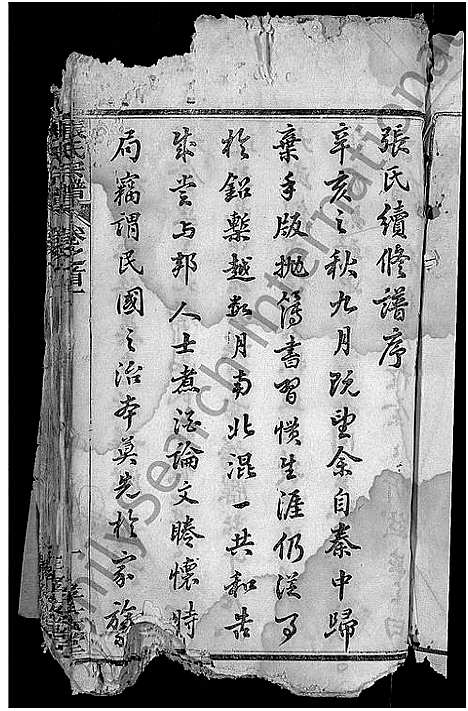 張氏續修譜序
辛亥之秋九月既望余自秦中歸
棄手版拋簿書習慣生涯仍從事
於鉛槧越數月南北混一共和告
成嘗与邦人士煮酒論文睠懷時
局竊謂民國之治本莫先於家族
張氏宗譜 卷之首
FamilySearch International